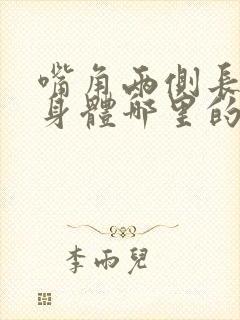 嘴角兩側長
身體哪里的
李雨兒